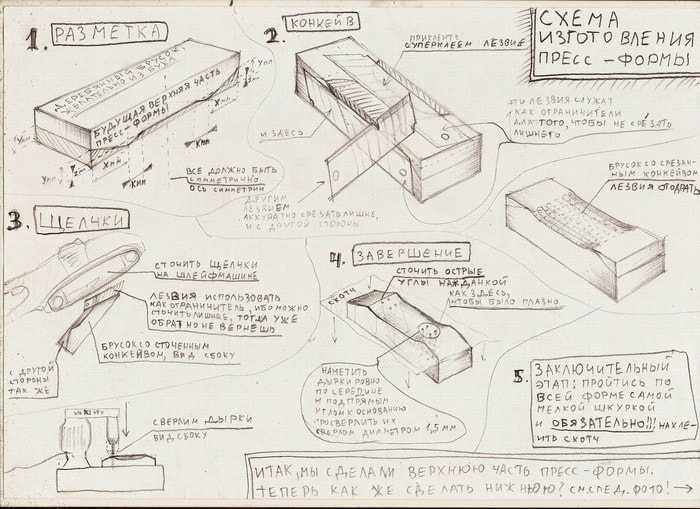 СХЕМА
ИЗГОТОВЛЕНИЯ
ПРЕСС-ФОРМЫ
1. РАЗМЕТКА
ДЕРЕВЯННЫЙ БРУСОК,
ЖЕЛАТЕЛЬНО ИЗ БУКА
БУДУЩАЯ ВЕРХНЯЯ ЧАСТЬ
ПРЕСС-ФОРМЫ
Упп
Хпп
Кпп
Упп
Хпп
Кпп
ВСЕ ДОЛЖНО БЫТЬ
СИММЕТРИЧНО
ОСЬ СИММЕТРИИ
2. КОНКЕЙВ
ПРИКЛЕИТЬ
СУПЕРКЛЕЕМ ЛЕЗВИЕ
И ЗДЕСЬ
ДРУГИМ
ЛЕЗВИЕМ
АККУРАТНО СРЕЗАТЬ ЛИШНЕЕ,
И С ДРУГОЙ СТОРОНЫ
ЭТИ ЛЕЗВИЯ СЛУЖАТ
КАК ОГРАНИЧИТЕЛИ
ДЛЯ ТОГО, ЧТОБЫ НЕ СРЕЗАТЬ
ЛИШНЕГО
БРУСОК СО СРЕЗАН-
НЫМ КОНКЕЙВОМ
ЛЕЗВИЯ ОТОДРАТЬ
3. ЩЕЛЧКИ
СТОЧИТЬ ЩЕЛЧКИ
НА ШЛЕЙФМАШИНЕ
ЛЕЗВИЯ ИСПОЛЬЗОВАТЬ
КАК ОГРАНИЧИТЕЛЬ, ИБО МОЖНО
СТОЧИТЬ ЛИШНЕЕ, ТОГДА УЖЕ
ОБРАТНО НЕ ВЕРНЕШЬ
БРУСОК СО СТОЧЕННЫМ
КОНКЕЙВОМ, ВИД СБОКУ
С ДРУГОЙ
СТОРОНЫ
ТАК ЖЕ
СВЕРЛИМ ДЫРКИ
ВИД СБОКУ
4. ЗАВЕРШЕНИЕ
СКОТЧ
СТОЧИТЬ ОСТРЫЕ
УГЛЫ НАЖДАЧКОЙ
КАК ЗДЕСЬ,
ЧТОБЫ БЫЛО ПЛАВНО
НАМЕТИТЬ
ДЫРКИ РОВНО
ПО СЕРЕДИНЕ
И ПОД ПРЯМЫМ
УГЛОМ К ОСНОВАНИЮ
ПРОСВЕРЛИТЬ ИХ
СВЕРЛОМ ДИАМЕТРОМ 1,5 мм
5. ЗАКЛЮЧИТЕЛЬНЫЙ
ЭТАП: ПРОЙТИСЬ ПО
ВСЕЙ ФОРМЕ САМОЙ
МЕЛКОЙ ШКУРКОЙ
И ОБЯЗАТЕЛЬНО!!! НАКЛЕ-
ИТЬ СКОТЧ
ИТАК, МЫ СДЕЛАЛИ ВЕРХНЮЮ ЧАСТЬ ПРЕСС-ФОРМЫ.
ТЕПЕРЬ КАК ЖЕ СДЕЛАТЬ НИЖНЮЮ? СМ.СЛЕД. ФОТО! →